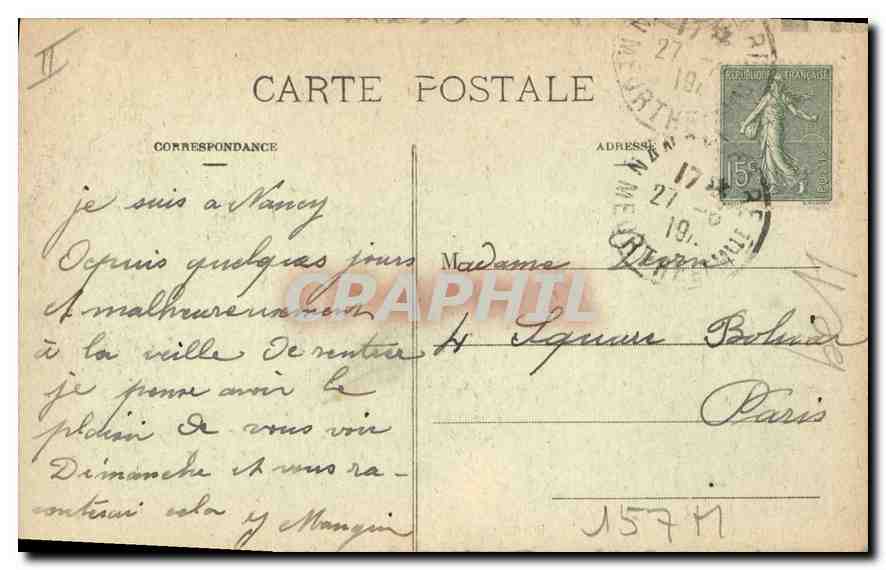 II
CARTE POSTALE
CORRESPONDANCE
ADRESSE
RÉPUBLIQUE FRANÇAISE
15c
POSTES
NANCY
17
27 -6
19
MEURTHE
je suis a Nancy
Depuis quelques jours
et malheureusement
à la veille de rentrer
je pense avoir le
plaisir de vous voir
Dimanche et vous ra-
conterai cela
Y Mangin
Madame
4 Square Bolivar
Paris
CPAPHIL
157 M